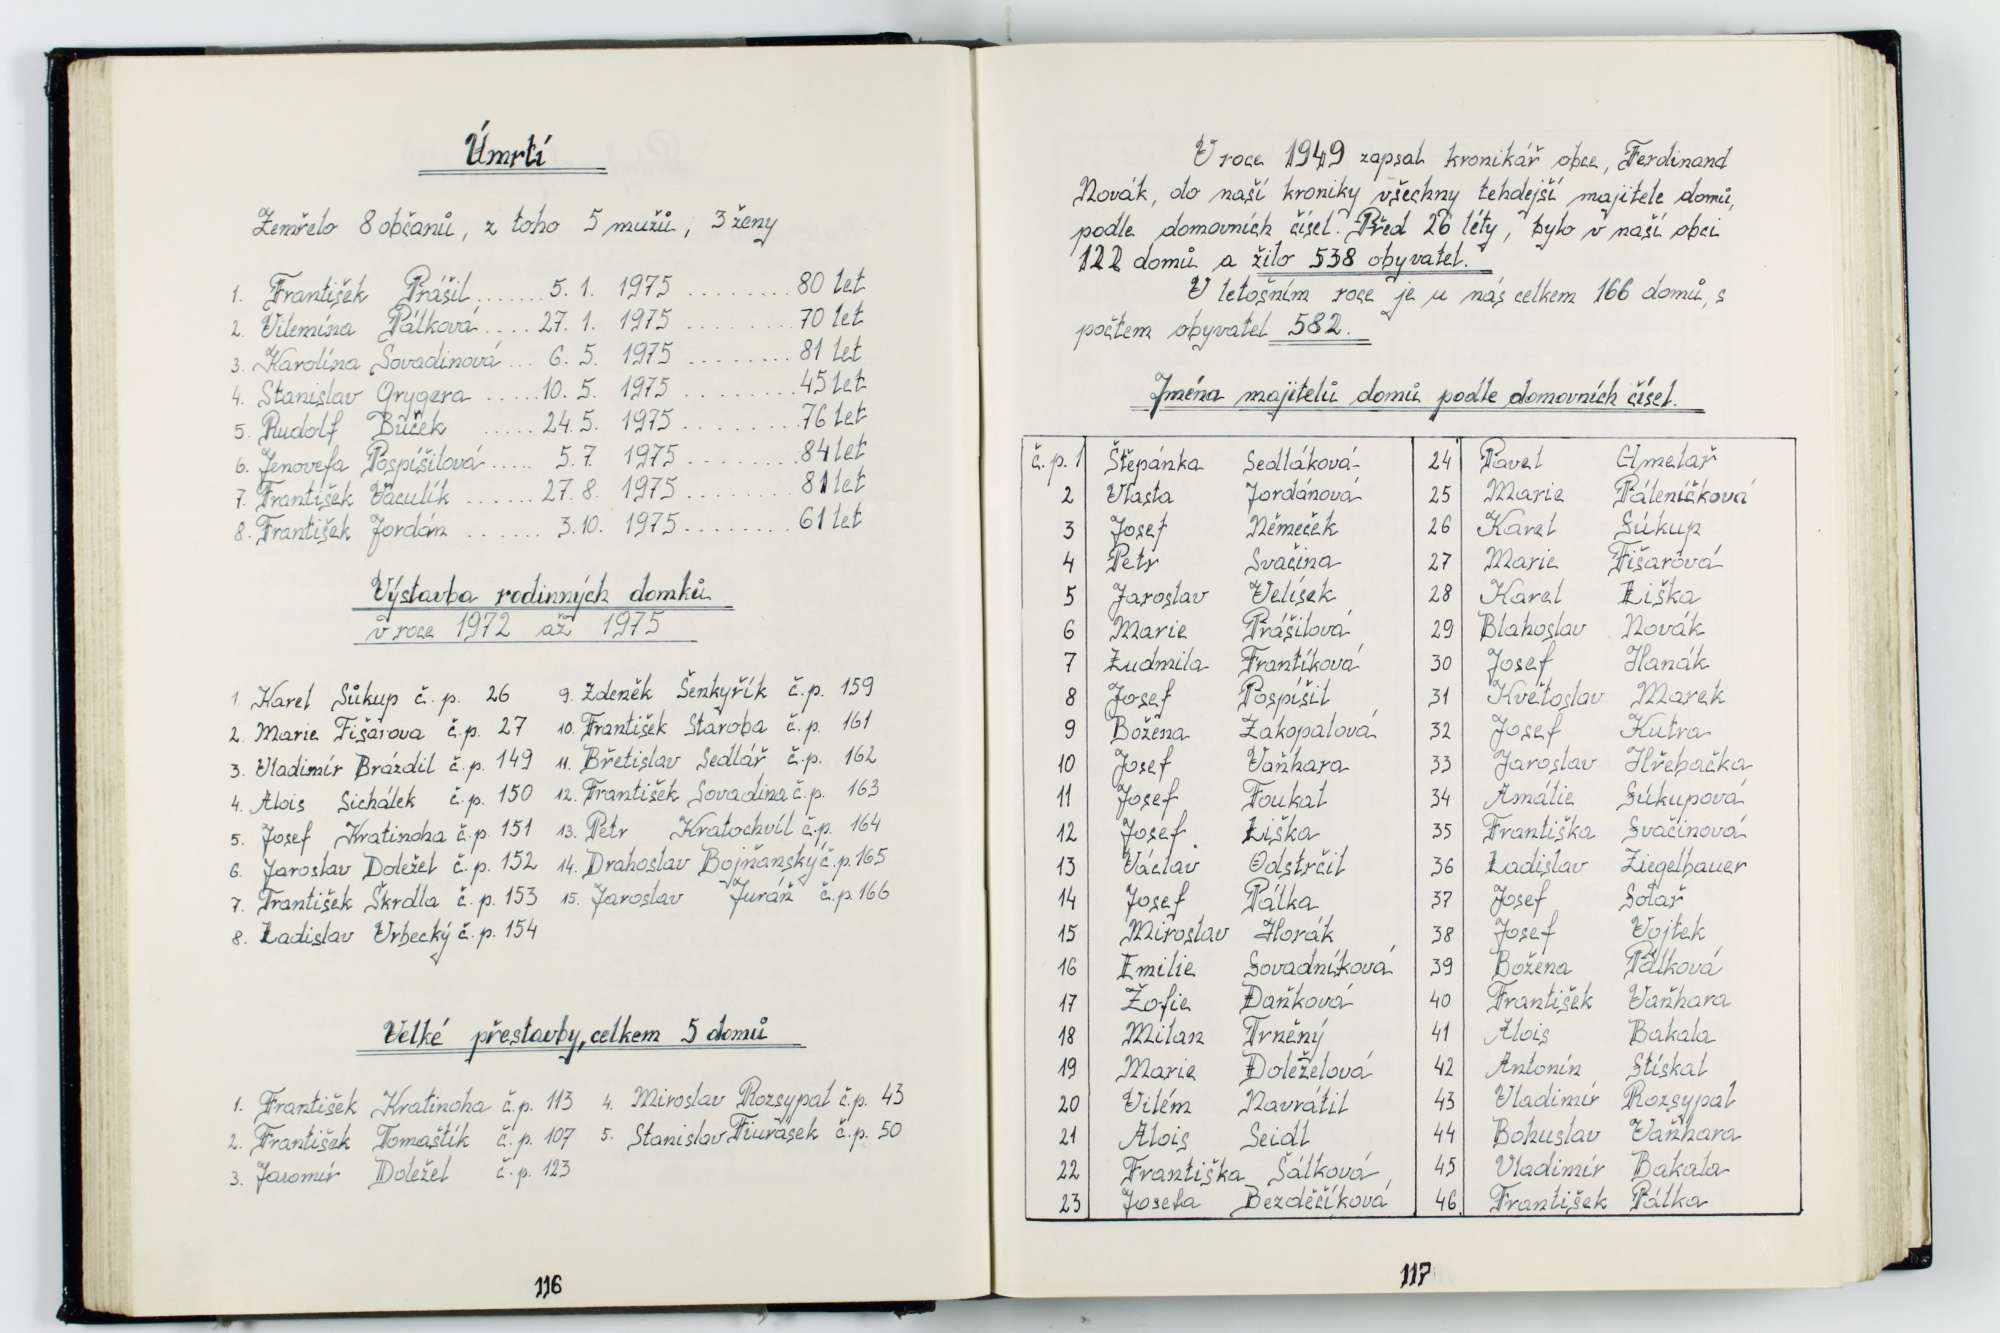 Úmrtí
Zemřelo 8 občanů, z toho 5 mužů, 3 ženy
1. František Prášil ....... 5. 1. 1975 ......... 80 let
2. Vilemína Pálková .... 27. 1. 1975 ........ 70 let
3. Karolína Sovadinová ... 6. 5. 1975 ........ 81 let
4. Stanislav Grygera ..... 10. 5. 1975 ........ 45 let
5. Rudolf Bůček ..... 24. 5. 1975 ........ 76 let
6. Jenovefa Pospíšilová ..... 5. 7. 1975 ........ 84 let
7. František Vaculík ...... 27. 8. 1975 ........ 81 let
8. František Jordán ...... 3. 10. 1975 ........ 61 let
Výstavba rodinných domků
v roce 1972 až 1975
1. Karel Sůkup č. p. 26
2. Marie Fišárova č. p. 27
3. Vladimír Brázdil č. p. 149
4. Alois Sichálek č. p. 150
5. Josef Kratinoha č. p. 151
6. Jaroslav Doležel č. p. 152
7. František Škrdla č. p. 153
8. Ladislav Vrbecký č. p. 154
9. Zdeněk Šenkyřík č. p. 159
10. František Staroba č. p. 161
11. Břetislav Sedlář č. p. 162
12. František Sovadina č. p. 163
13. Petr Kratochvíl č. p. 164
14. Drahoslav Bojňanský č. p. 165
15. Jaroslav Juráň č. p. 166
Velké přestavby, celkem 5 domů
1. František Kratinoha č. p. 113
2. František Tomaštík č. p. 107
3. Jaromír Doležel č. p. 123
4. Miroslav Rozsypal č. p. 43
5. Stanislav Fiurášek č. p. 50
116
V roce 1949 zapsal kronikář obce, Ferdinand
Novák, do naší kroniky všechny tehdejší majitele domů,
podle domovních čísel. Před 26 léty, bylo v naší obci
122 domů a žilo 538 obyvatel.
V letošním roce je u nás celkem 166 domů, s
počtem obyvatel 582.
Jména majitelů domů podle domovních čísel.
č. p. 1 Štěpánka Sedláková
2 Vlasta Jordánová
3 Josef Němeček
4 Petr Svačina
5 Jaroslav Velísek
6 Marie Prášilová
7 Ludmila Frantíková
8 Josef Pospíšil
9 Božena Zakopalová
10 Josef Vaňhara
11 Josef Foukal
12 Josef Liška
13 Václav Odstrčil
14 Josef Pálka
15 Miroslav Horák
16 Emilie Sovadníková
17 Žofie Daňková
18 Milan Trněný
19 Marie Doleželová
20 Vilém Navrátil
21 Alois Seidl
22 Františka Šálková
23 Josefa Bezděčíková
24 Pavel Chmelař
25 Marie Páleníčková
26 Karel Súkup
27 Marie Fišarová
28 Karel Liška
29 Blahoslav Novák
30 Josef Hanák
31 Květoslav Marek
32 Josef Kutra
33 Jaroslav Hřebačka
34 Amálie Súkupová
35 Františka Svačinová
36 Ladislav Ziegelbauer
37 Josef Solař
38 Josef Vojtek
39 Božena Pálková
40 František Vaňhara
41 Alois Bakala
42 Antonín Stískal
43 Vladimír Rozsypal
44 Bohuslav Vaňhara
45 Vladimír Bakala
46 František Pálka
117